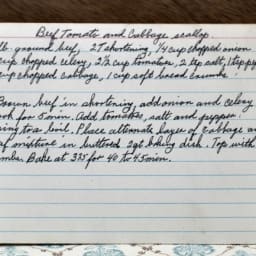 Beef Tomato and Cabbage scallop
lb. ground beef, 2T shortening, 1/4 cup chopped onion
cup chopped celery, 2 1/2 cup tomatoes, 2 tsp salt, 1 tsp
cup chopped cabbage, 1 cup soft bread crumbs.
Brown beef in shortening, add onion and celery
ook for 5 min. Add tomatoes, salt and pepper.
ring to a boil. Place alternate layer of cabbage an
ef mixture in buttered 2qt baking dish. Top with
umbs. Bake at 375 for 40 to 45 min.